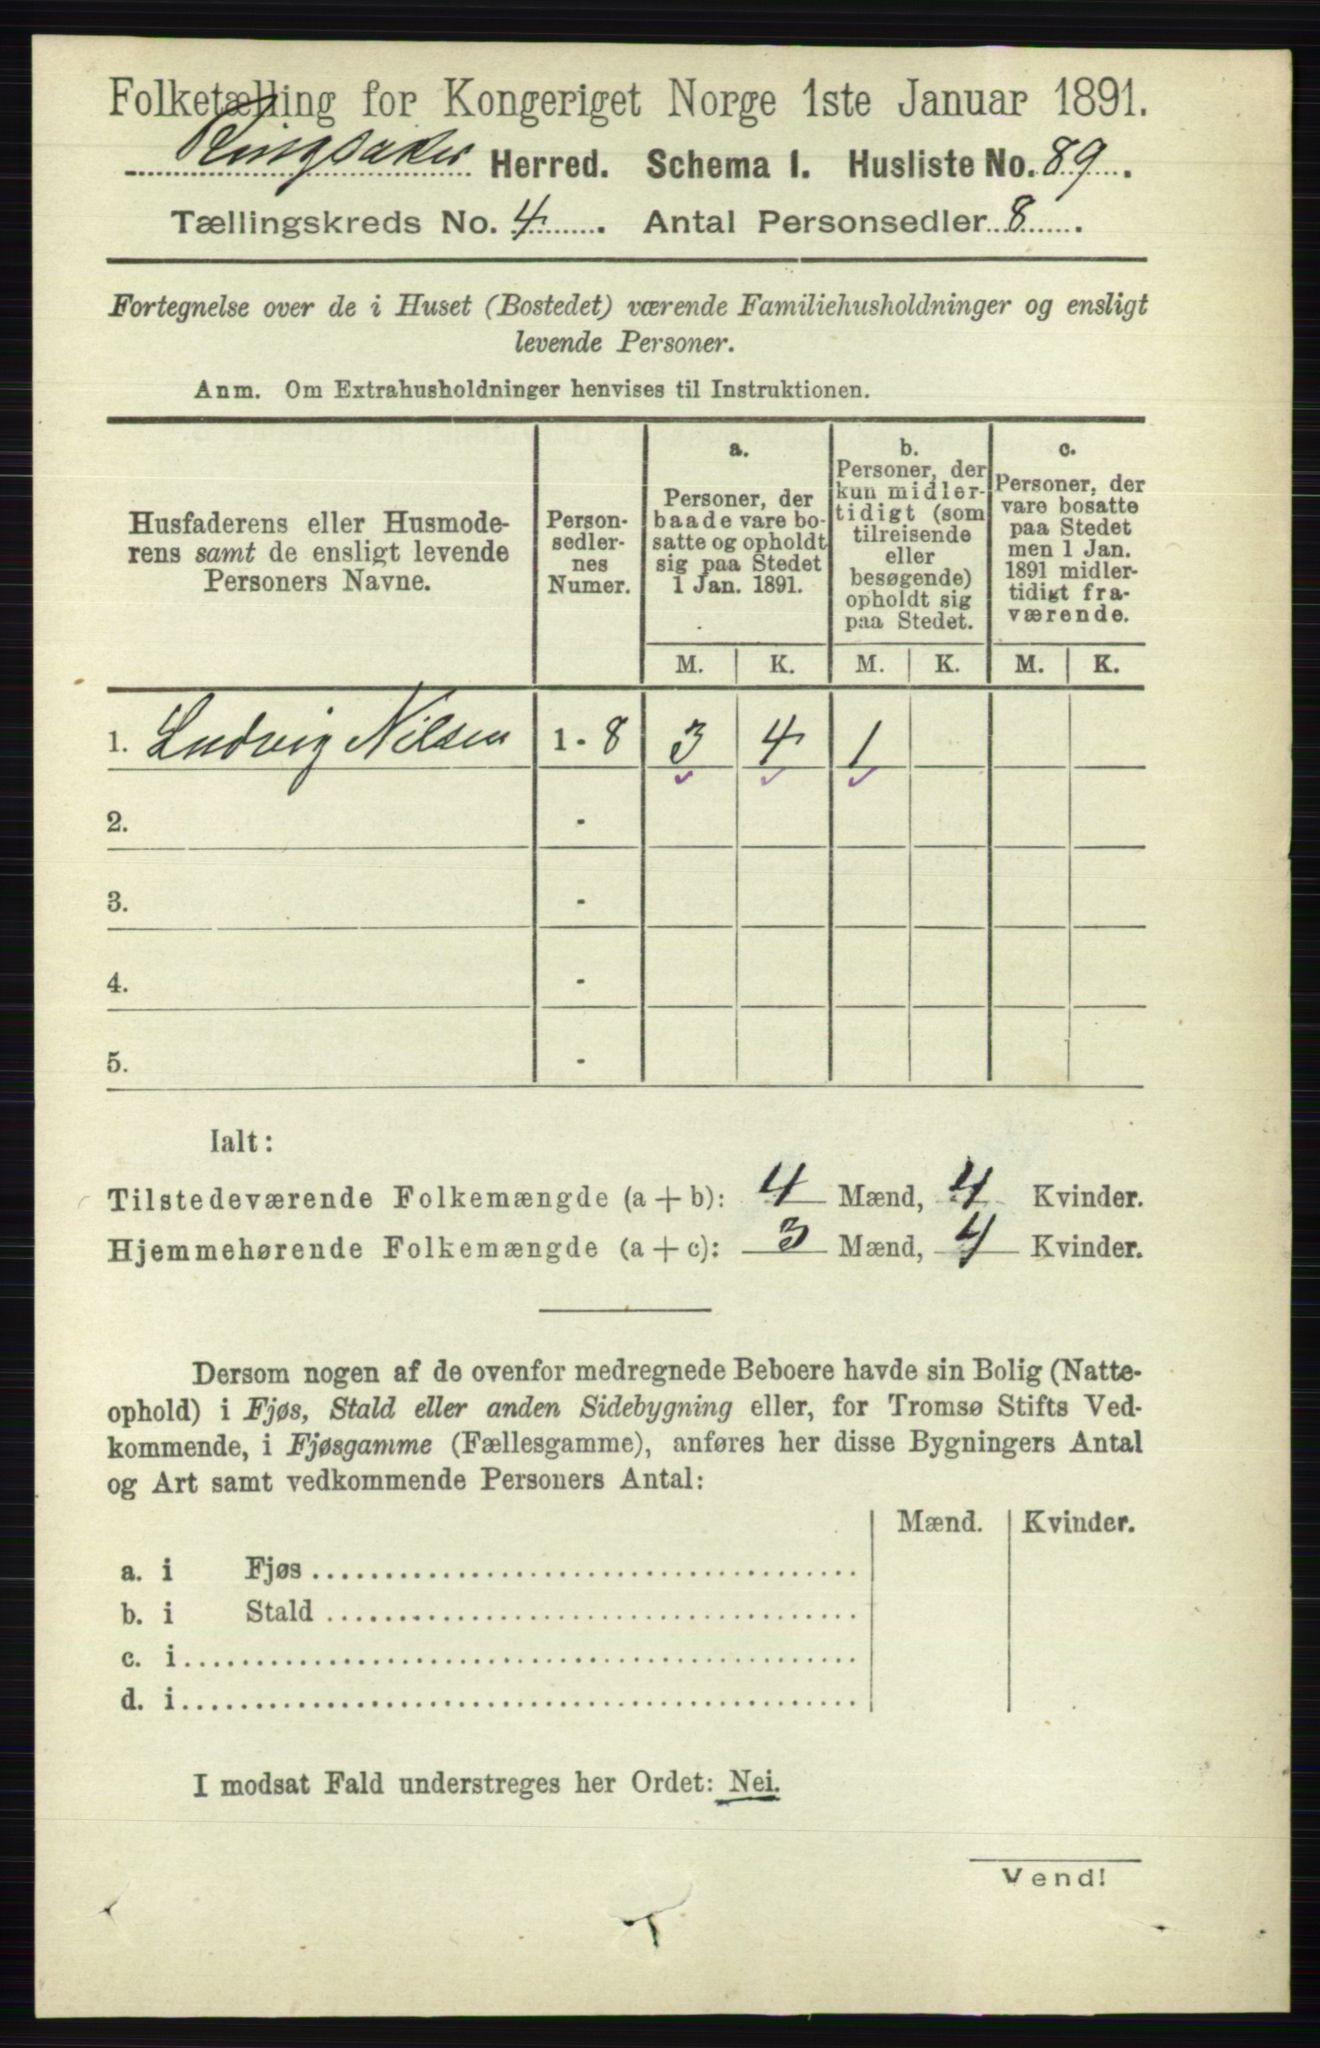 Folketælling for Kongeriget Norge 1ste Januar 1891.
Ringsaker Herred. Schema I. Husliste No. 89.
Tællingskreds No. 4. Antal Personsedler 8.
Fortegnelse over de i Huset (Bostedet) værende Familiehusholdninger og ensligt
levende Personer.
Anm. Om Extrahusholdninger henvises til Instruktionen.
Husfaderens eller Husmode-
rens samt de ensligt levende
Personers Navne.
Person-
sedler-
nes
Numer.
a.
Personer, der
baade vare bo-
satte og opholdt
sig paa Stedet
1 Jan. 1891.
b.
Personer, der
kun midler-
tidigt (som
tilreisende
eller
besøgende)
opholdt sig
paa Stedet.
c.
Personer, der
vare bosatte
paa Stedet
men 1 Jan.
1891 midler-
tidigt fra-
værende.
M. K. M. K. M. K.
1. Ludvig Nilsen 1 - 8 3 4 1
2. -
3. -
4. -
5. -
Ialt:
Tilstedeværende Folkemængde (a + b): 4 Mænd, 4 Kvinder.
Hjemmehørende Folkemængde (a + c): 3 Mænd, 4 Kvinder.
Dersom nogen af de ovenfor medregnede Beboere havde sin Bolig (Natte-
ophold) i Fjøs, Stald eller anden Sidebygning eller, for Tromsø Stifts Ved-
kommende, i Fjøsgamme (Fællesgamme), anføres her disse Bygningers Antal
og Art samt vedkommende Personers Antal:
Mænd. Kvinder.
a. i Fjøs
b. i Stald
c. i
d. i
I modsat Fald understreges her Ordet: Nei.
Vend!